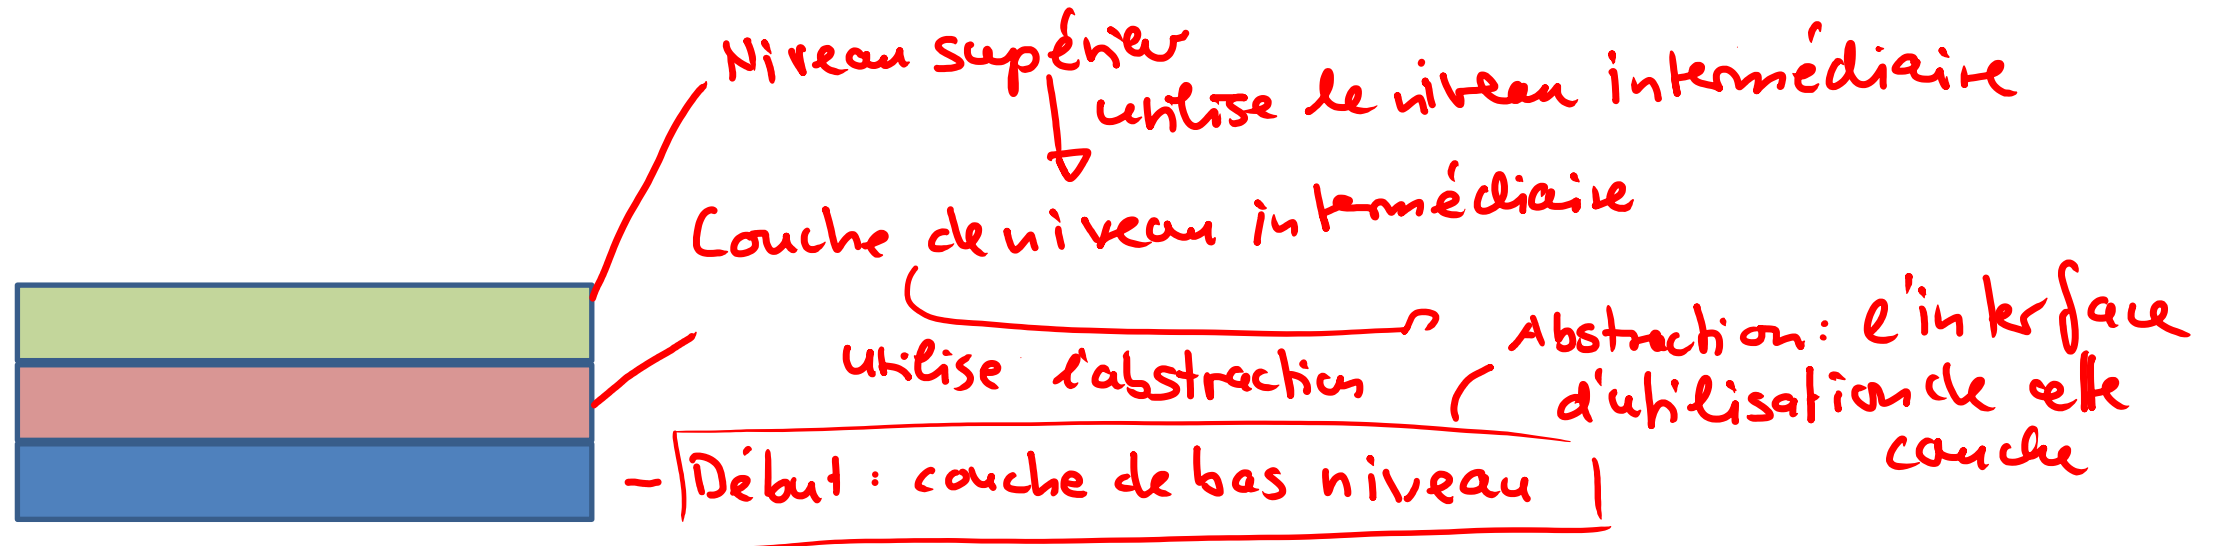 Niveau supérieur
utilise le niveau intermédiaire
Couche de niveau intermédiaire
utilise l'abstraction
Abstraction : l'interface
d'utilisation de cette
couche
- Début : couche de bas niveau